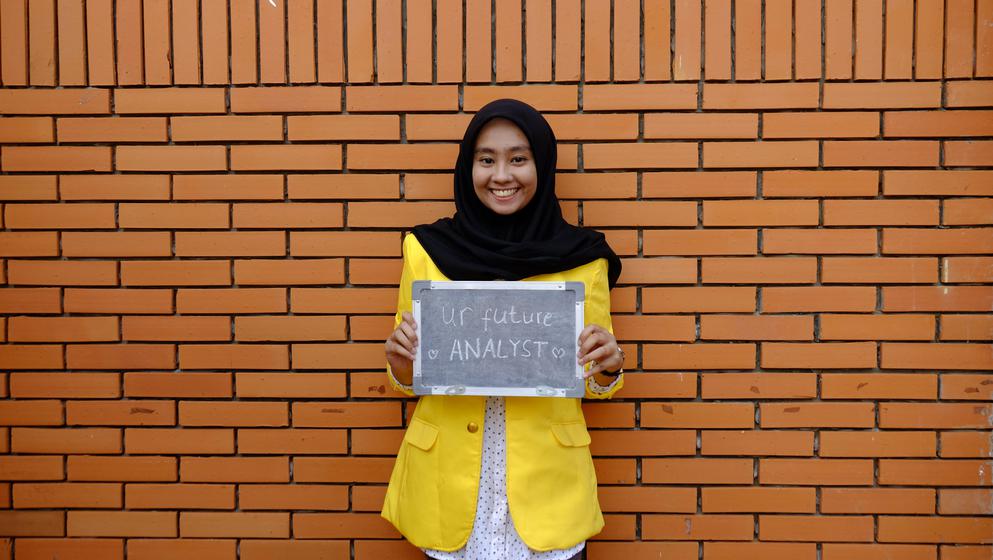 ur future
♡ ANALYST ♡